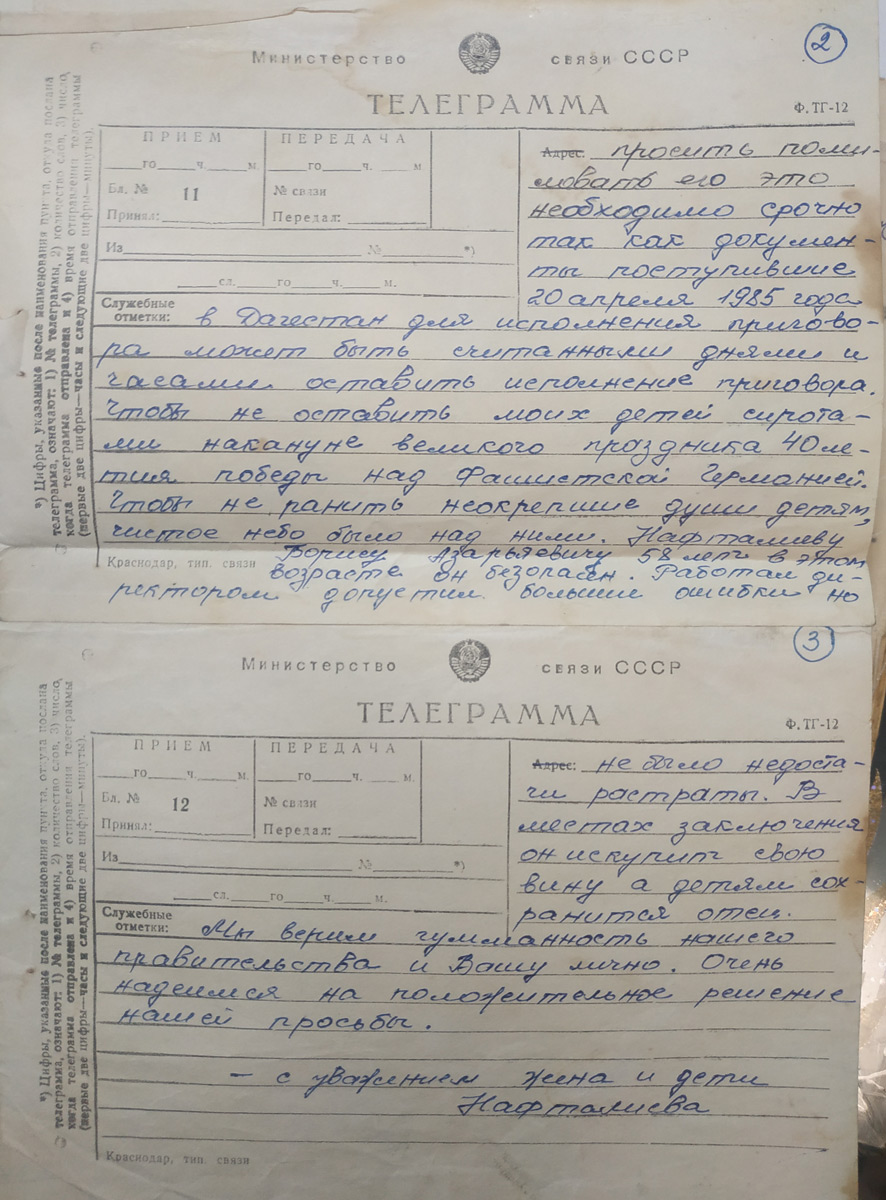 2
Министерство связи СССР
ТЕЛЕГРАММА
Ф. ТГ-12
ПРИЕМ
ПЕРЕДАЧА
го ч. м.
го ч. м.
Бл. № 11
№ связи
Принял:
Передал:
Из № *)
сл. го ч. м.
Служебные отметки:
Адрес: просить поми-
ловать его это
необходимо срочно
так как докумен-
ты поступившие
20 апреля 1985 года
в Дагестан для исполнения пригово-
ра может быть считанными днями и
часами оставить исполнение приговора.
Чтобы не оставить моих детей сирота-
ми накануне великого праздника 40 ле-
тия победы над Фашистской Германией.
Чтобы не ранить неокрепшие души детям,
чистое небо было над ними. Нафталиеву
Борису Азарьяевичу 58 лет в этом
возрасте он безопасен. Работал ди-
ректором допустил большие ошибки но
Краснодар, тип. связи
*) Цифры, указанные после наименования пункта, откуда послана
телеграмма, означают: 1) № телеграммы, 2) количество слов, 3) число,
когда телеграмма отправлена и 4) время отправления телеграммы
(первые две цифры—часы и следующие две цифры—минуты).
3
Министерство связи СССР
ТЕЛЕГРАММА
Ф. ТГ-12
ПРИЕМ
ПЕРЕДАЧА
го ч. м.
го ч. м.
Бл. № 12
№ связи
Принял:
Передал:
Из № *)
сл. го ч. м.
Служебные отметки:
Адрес: не было недоста-
чи растраты. В
местах заключения
он искупит свою
вину а детям сох-
ранится отец.
Мы верим гумманность нашего
правительства и Вашу лично. Очень
надеимся на положительное решение
нашей просьбы.
– с уважением жена и дети
Нафталиева
Краснодар, тип. связи
*) Цифры, указанные после наименования пункта, откуда послана
телеграмма, означают: 1) № телеграммы, 2) количество слов, 3) число,
когда телеграмма отправлена и 4) время отправления телеграммы
(первые две цифры—часы и следующие две цифры—минуты).